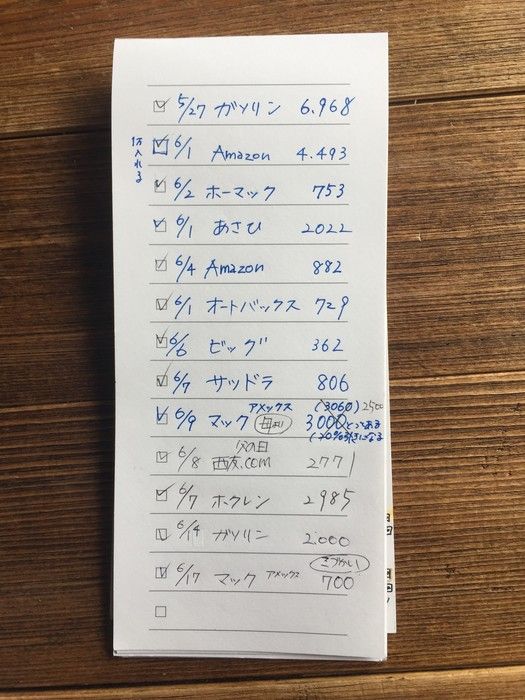 5/27 ガソリン 6.968
1万入れる
6/1 Amazon 4.493
6/2 ホーマック 753
6/1 あさひ 2022
6/4 Amazon 882
6/1 オートバックス 729
6/6 ビッグ 362
6/7 サツドラ 806
アメックス (3060) 2500
6/9 マック 母より 3000 とってある
(20%引きになる
父の日
6/8 西友.com 2771
6/7 ホクレン 2985
6/14 ガソリン 2.000
こづかい
6/17 マック アメックス 700